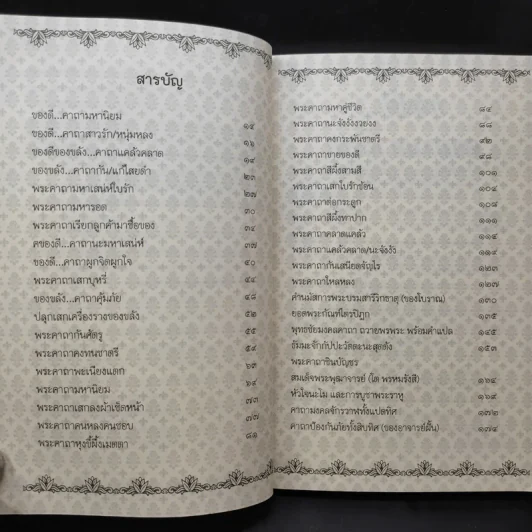 สารบัญ
ของดี...คาถามหานิยม
ของดี...คาถาสาวรัก/หนุ่มหลง ๑๕
ของดีของขลัง...คาถาแคล้วคลาด ๑๖
ของขลัง...คาถากัน/แก้ไสยดำ ๑๙
พระคาถามหาเสน่ห์ใบรัก ๒๓
พระคาถามหารอด ๒๗
พระคาถาเรียกลูกค้ามาซื้อของ ๓๐
คของดี...คาถานะมหาเสน่ห์ ๓๔
ของดี...คาถาผูกจิตผูกใจ ๓๗
พระคาถาเสกบุหรี่ ๔๐
ของขลัง...คาถาคุ้มภัย ๔๔
ปลุกเสกเครื่องรางของขลัง ๔๘
พระคาถากันศัตรู ๕๒
พระคาถาคงทนชาตรี ๕๕
พระคาถาพะเนียงแตก ๕๙
พระคาถามหานิยม ๖๙
พระคาถาเสกลงผ้าเช็ดหน้า ๗๓
พระคาถาคนหลงคนชอบ ๗๗
พระคาถาหุงขี้ผึ้งเมตตา ๘๑
พระคาถามหาคู่ชีวิต ๘๔
พระคาถานะจังงังงวยงง ๘๘
พระคาถาคงกระพันชาตรี ๙๒
พระคาถาขายของดี ๙๘
พระคาถาสีผึ้งสามสี ๑๐๑
พระคาถาเสกใบรักซ้อน ๑๐๔
พระคาถาต่อกระดูก ๑๐๘
พระคาถาสีผึ้งทาปาก ๑๑๑
พระคาถาคลาดแคล้ว ๑๑๔
พระคาถาแคล้วคลาด/นะจังงัง ๑๑๙
พระคาถากันเสนียดจัญไร ๑๒๓
พระคาถาไหลหลง ๑๒๗
คำนมัสการพระบรมสารีริกธาตุ (ของโบราณ) ๑๓๐
ยอดพระกัณฑ์ไตรปิฎก ๑๓๕
พุทธชัยมงคลคาถา ถวายพรพระ พร้อมคำแปล ๑๔๕
ธัมมะจักกัปปะวัตตะนะสุตตัง ๑๕๓
พระคาถาชินบัญชร
สมเด็จพระพุฒาจารย์ (โต พรหมรังสี) ๑๖๔
หัวใจนะโม และการบูชาพระราหู ๑๖๙
คาถามงคลจักรวาฬทั้งแปดทิศ ๑๗๒
คาถาป้องกันภัยทั้งสิบทิศ (ของอาจารย์ฝั้น) ๑๗๔